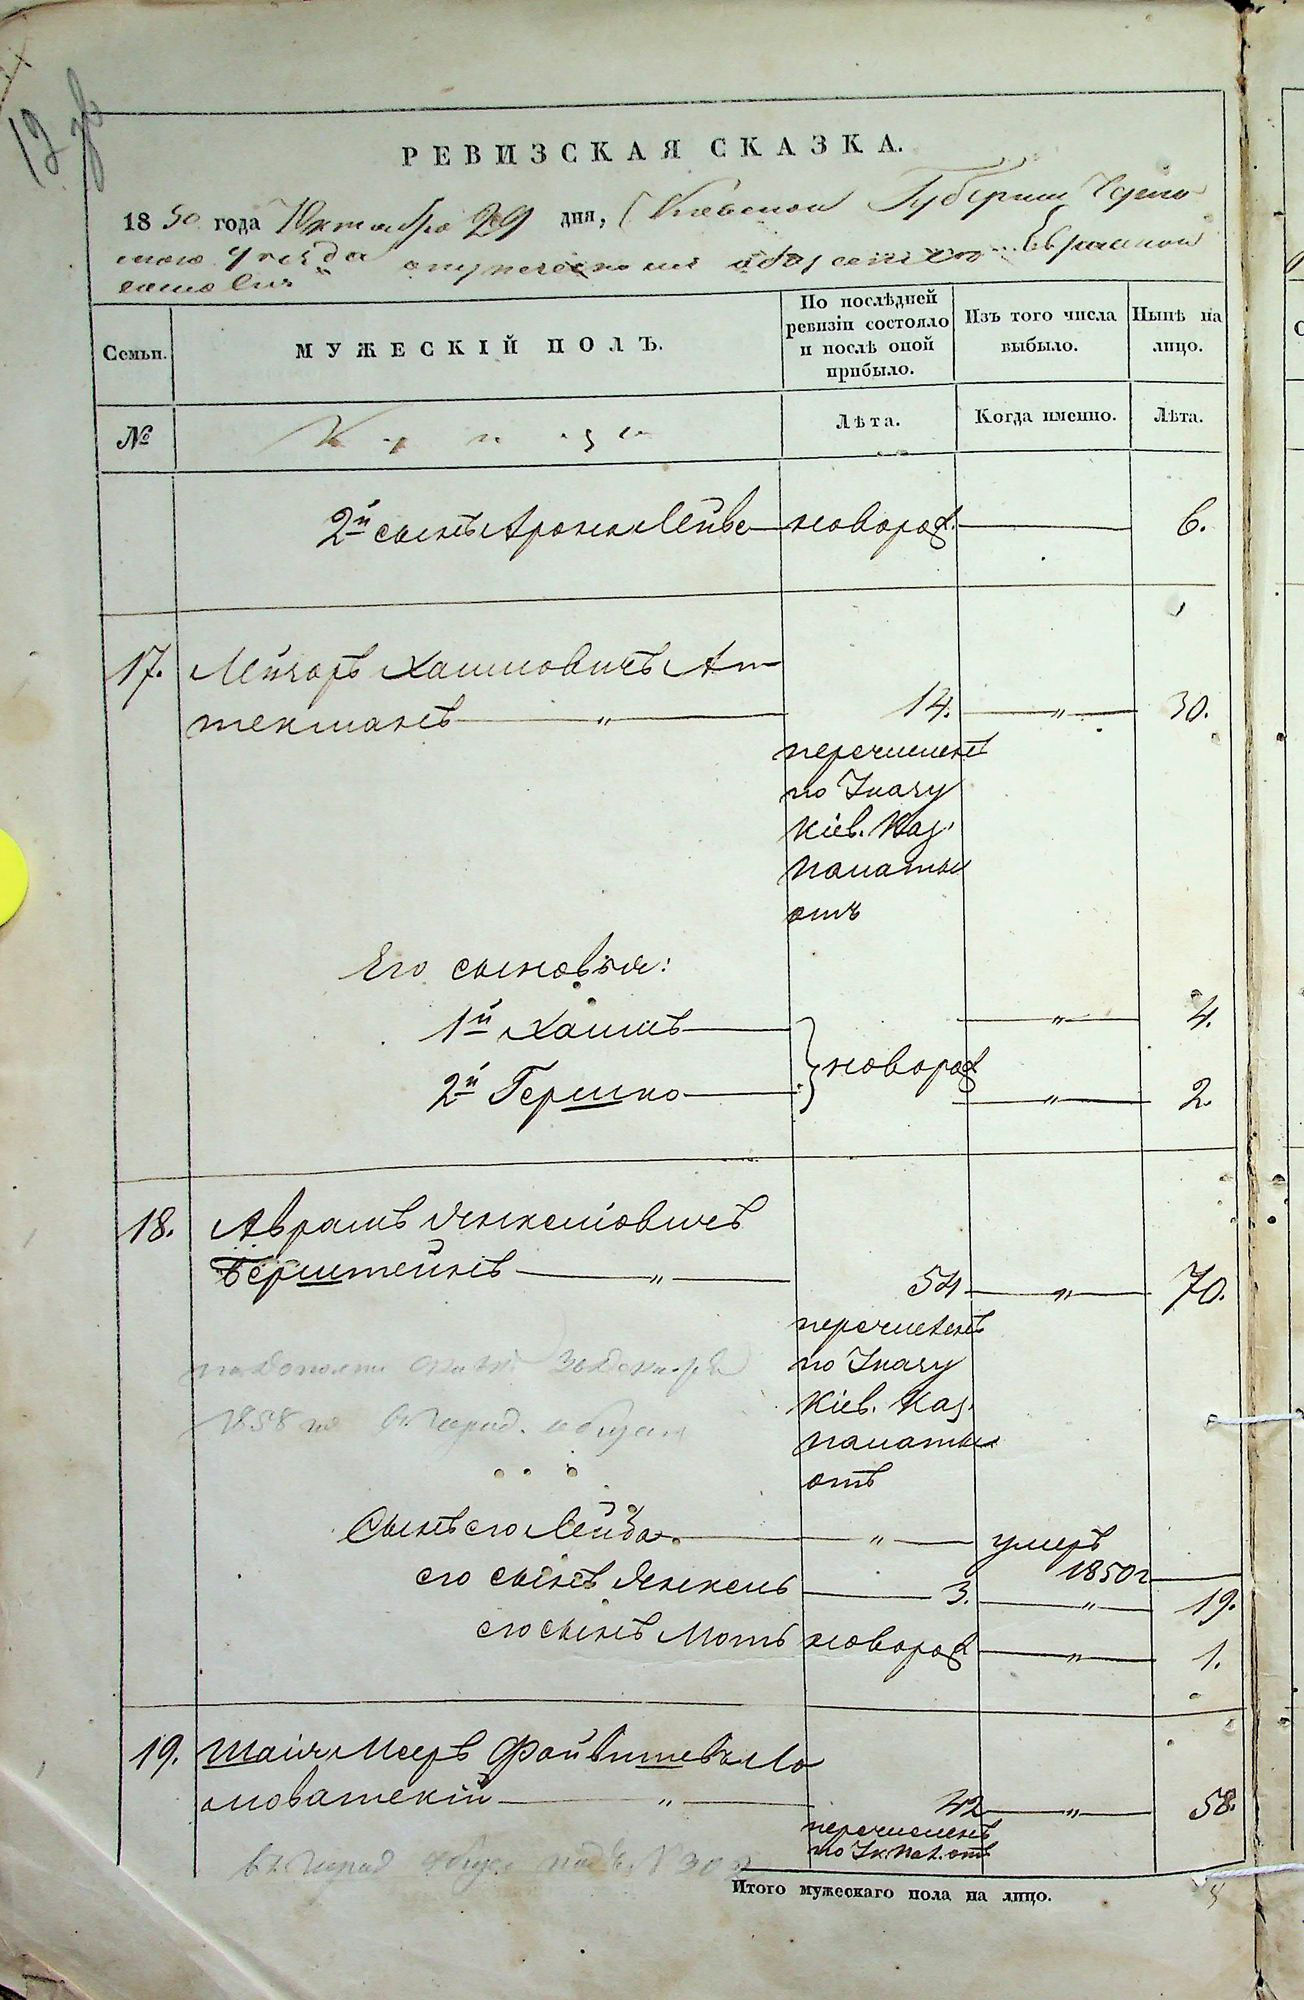 12 об
РЕВИЗСКАЯ СКАЗКА.
1850 года Октября 29 дня, Кіевской Губерніи
уезда Еврейской
Семьи.
МУЖЕСКІЙ ПОЛЪ.
По послѣдней ревизіи состояло и послѣ оной прибыло.
Изъ того числа выбыло.
Нынѣ на лицо.
№
Лѣта.
Когда именно.
Лѣта.
2й сынъ Аронъ Лейба новорож. 6.
17. Мейчоръ Хаимовичъ Ап-
текманъ " 14. " 30.
перечисленъ
по Указу
Кіев. Каз.
палаты
отъ
Его сыновья:
1й Хаимъ " 4.
новорож
2й Гершко " 2.
18. Аврамъ Янкеліовичъ
Берштейнъ " 54 " 70.
перечисленъ
по Указу
1858
Кіев. Каз.
палаты
отъ
Сынъ его Лейба " умеръ
1850г
его сынъ Янкель 3. " 19.
его сынъ Моть новорож " 1.
19. Шаія Мееръ Файвишевъ
" 42 " 58.
перечисленъ
по Ук. Пал. отъ
Итого мужескаго пола на лицо.